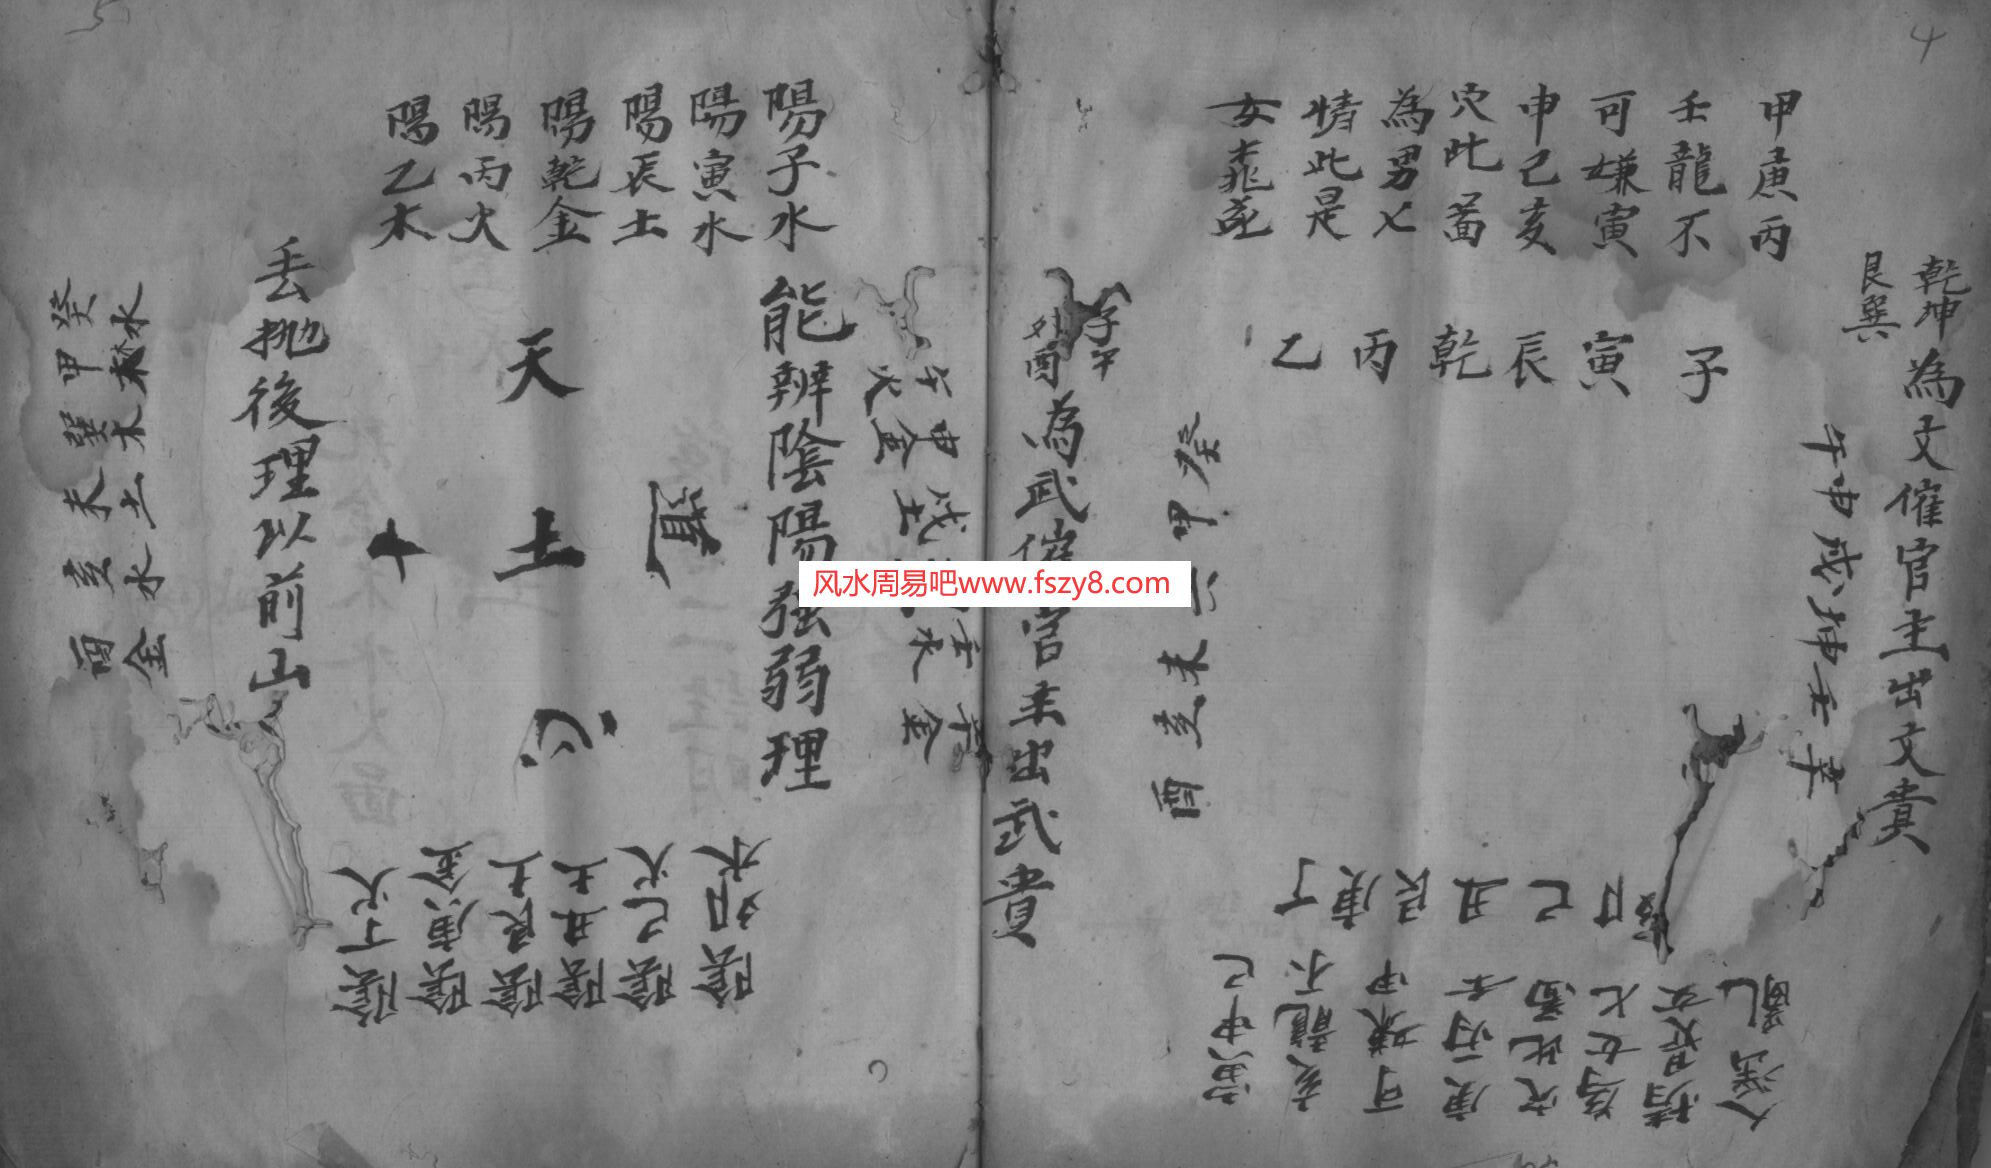 4
乾坤
艮巽
為文催官主出文貴
甲庚丙
壬龍不
可嫌寅
申己亥
穴此畜
為男七
情此是
女
子
寅
辰
乾
丙
乙
午申戌坤壬辛
癸甲
未亥酉
丁庚艮丑己卯
寅申己
亥龍不
可嫌甲
庚丙壬
穴此畜
為女七
情是女
人淫亂
子午
卯酉
為武催官主出武貴
5
陽子水
陽寅水
陽辰土
陽乾金
陽丙火
陽乙木
能辨陰陽強弱理
午火
申金
戌土
壬水
辛金
天
土
心
十
道
丢拋後理以前山
癸水
甲木
巽木
未土
亥水
酉金
陰卯木
陰己火
陰丑土
陰艮土
陰庚金
陰丁火
风水周易吧www.fszy8.com